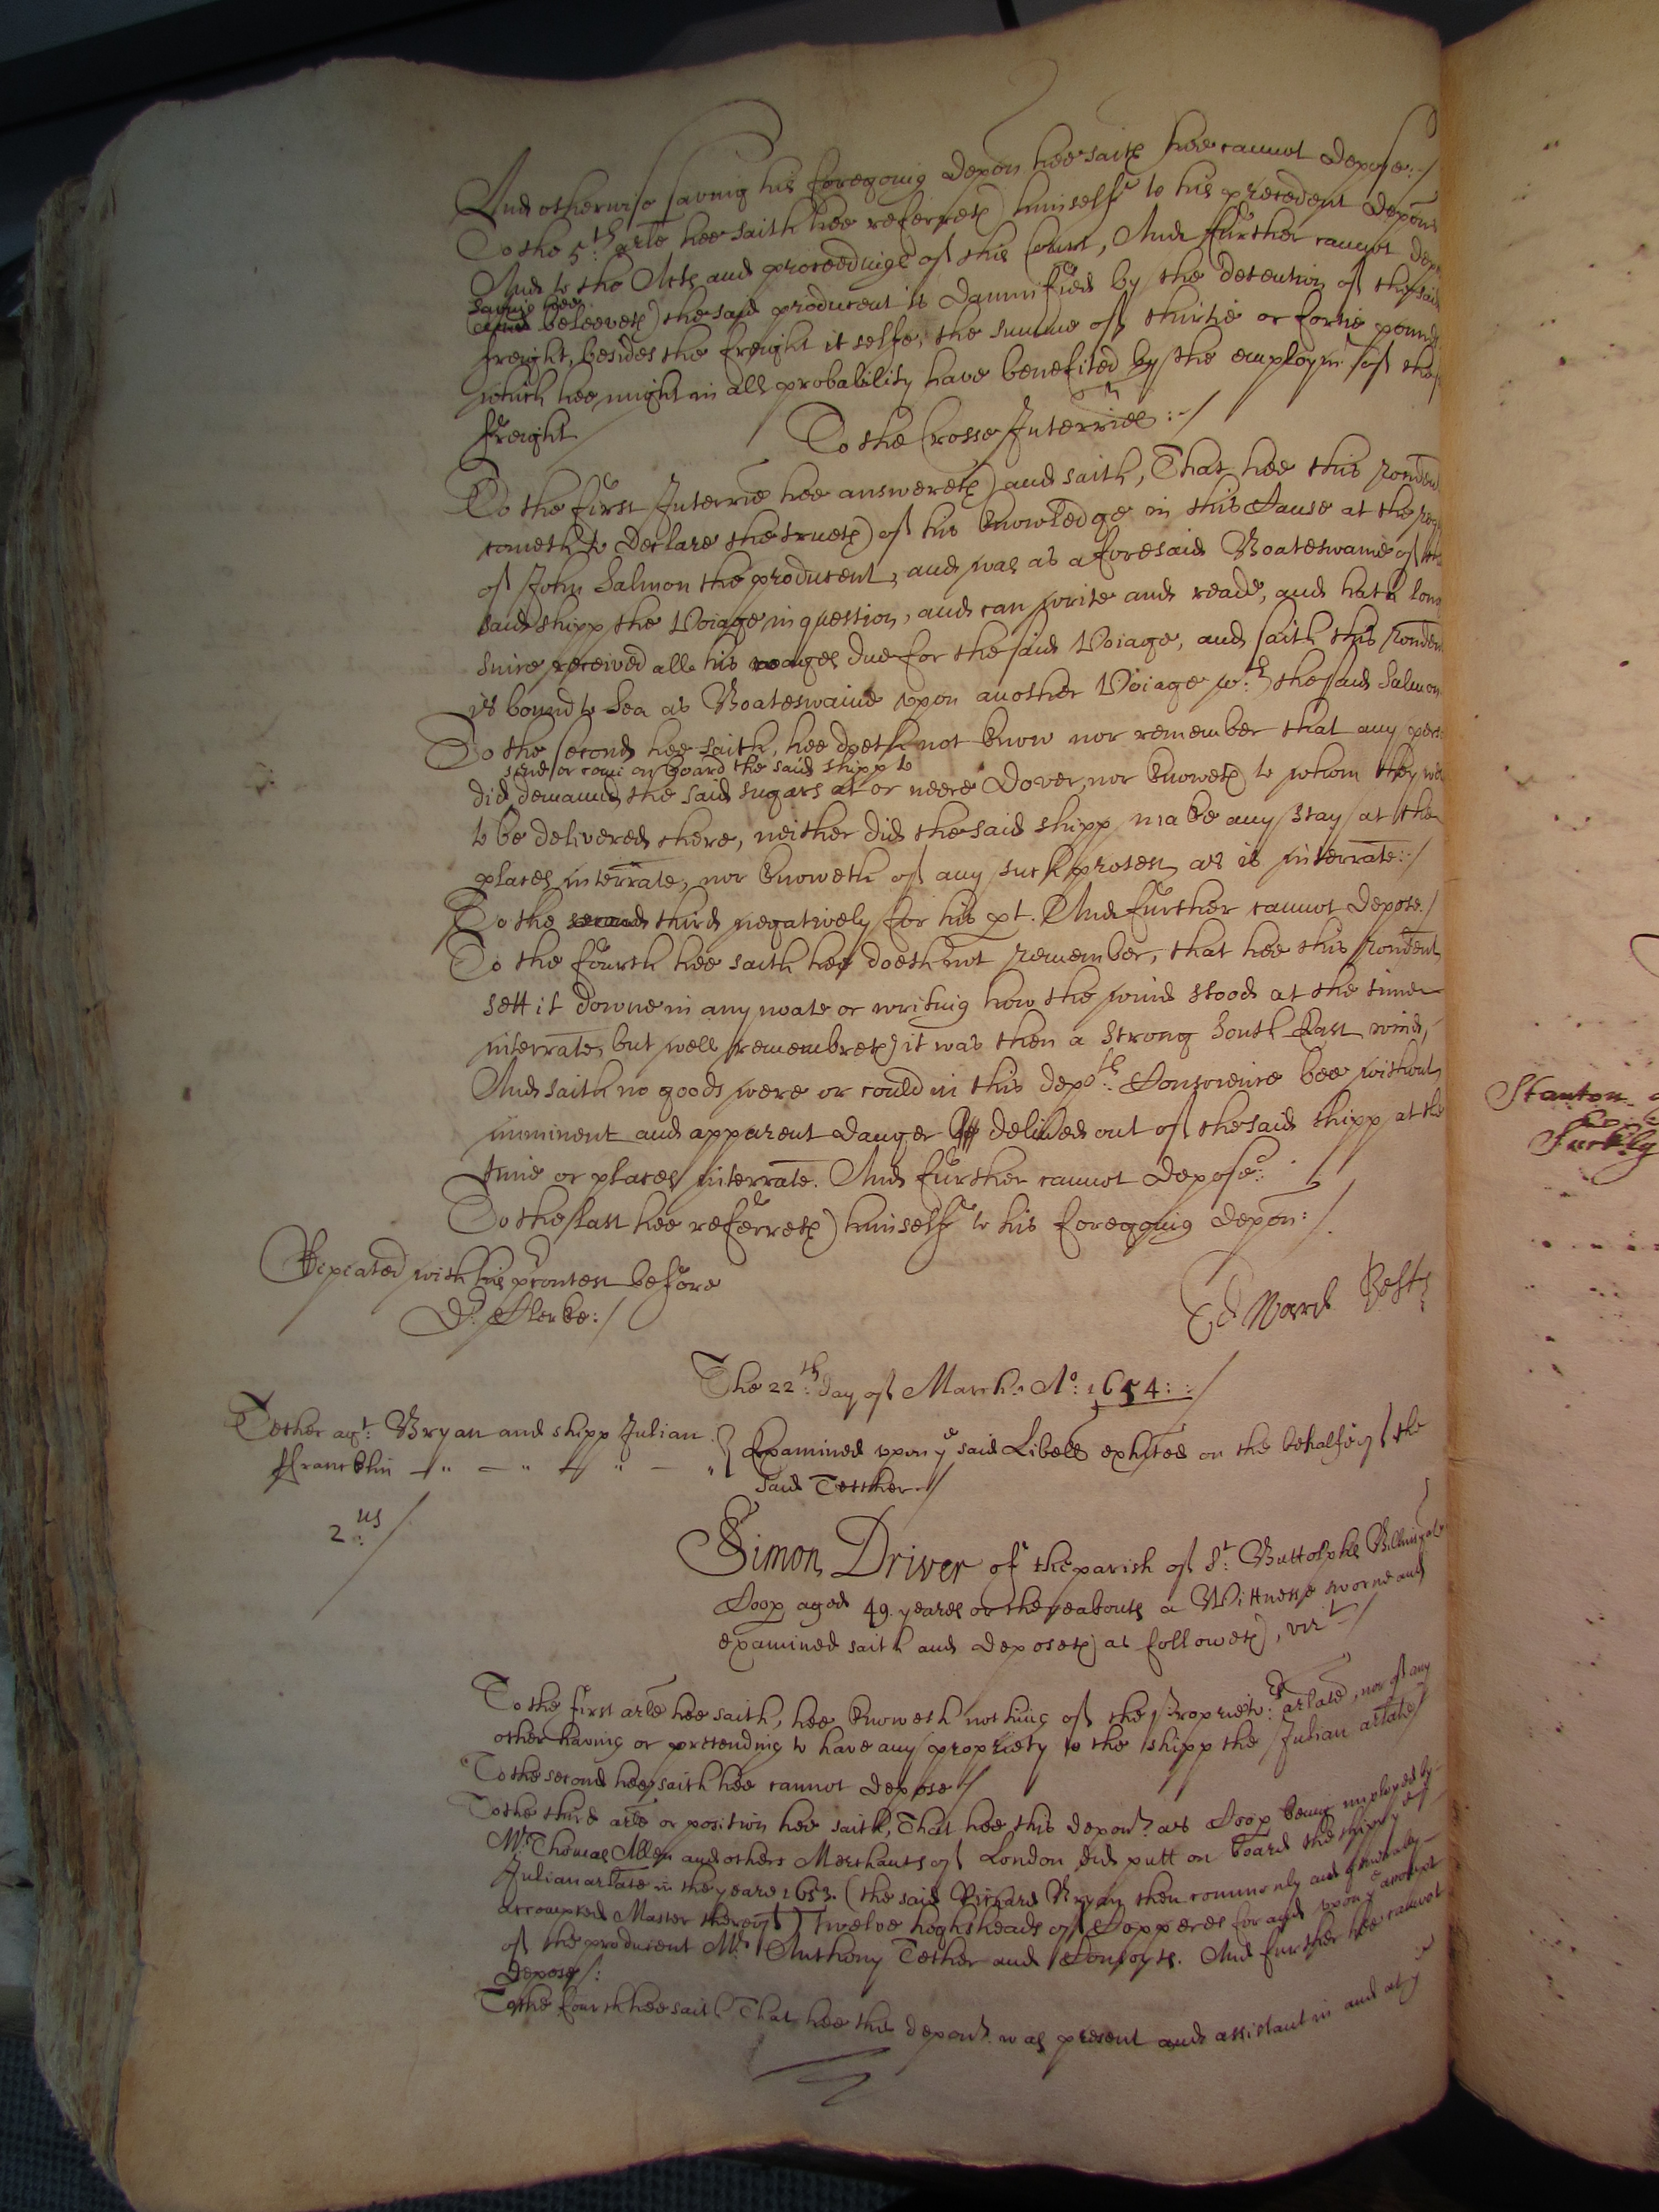 And otherwise saving his foregoing depon hee saith hee cannot depose:/
To the 5:th arle hee saith hee referreth himselfe to his precedent depons
And to the Acts and proceedings of this Court, And further cannot depo
saving hee
beleeveth) the said producent is damnified by the detention of the said
freight, besides the freight it selfe, the summe of thirtie or fortie pounds
which hee might in all probability have benefited by the employmt of the
freight
To the Crosse Interries:-/
To the first Interrie hee answereth and saith, That hee this rondent
cometh to declare the trueth of his knowledge in this Cause at the req
of John Salmon the producent, and was as aforesaid Boateswaine of the
said shipp the Voiage in question, and can write and reade, and hath long
since received all his wages due for the said Voiage, and saith this ronden
is bound to Sea as Boateswaine upon another Voiage w:th the said Salmon
To the second hee saith, hee doeth not know nor remember that any pers
send or come on board the said shipp to
did demannd the said sugars at or neere Dover, nor knoweth to whom they we
to be delivered there, neither did the said shipp make any stay at the
places interrate, nor knoweth of any such protest as is interrate:-/
To the second third negatively for his pt. And further cannot depose./
To the fourth hee saith hee doeth not remember, that hee this rondent
sett it downe in any noate or writing how the wind stood at the time
interrate, but well remembreth it was then a strong South East wind,
And saith no goods were or could in this depo:ts Conscience bee without
imminent and apparent danger delived out of the said shipp at the
time or places interrate. And further cannot depose:
To the last hee referreth himselfe to his foregoing depon:/.
Repeated with his contest before
Dr. Clerke:/
Edward Best
The 22:th day of March: Ao: 1654::/
Tether agt: Bryan and shipp Julian
ffrancklin
Examined upon ye said Libell exhited on the behalfe of the
said Tether./
2:us
Simon Driver of the parish of St: Buttolphs Billinsgate
Coop aged 49. yeares or thereabouts a Wittnesse sworne and
examined saith and deposeth as followeth, vizt /
To the first arle hee saith, hee knoweth nothing of the Proprietrs: arlate, nor of any
other having or pretending to have any propriety to the shipp the Julian arlate/
To the second hee saith hee cannot depose/
To the third arle or position hee saith, That hee this depont. as Coop being imployed by
Mr. Thomas Allen and others Merchants of London did putt on board the shipp ye
Julian arlate in the yeare 1653. (the said Richard Bryan then commonly and generally
accompted Master thereof) twelve hogsheads of Copperes for and upon ye accompt
of the producent Mr. Anthony Tether and Company. And further hee cannot
depose/:
To the fourth hee saith That hee this depont. was present and assistant in and at ye
Stanton